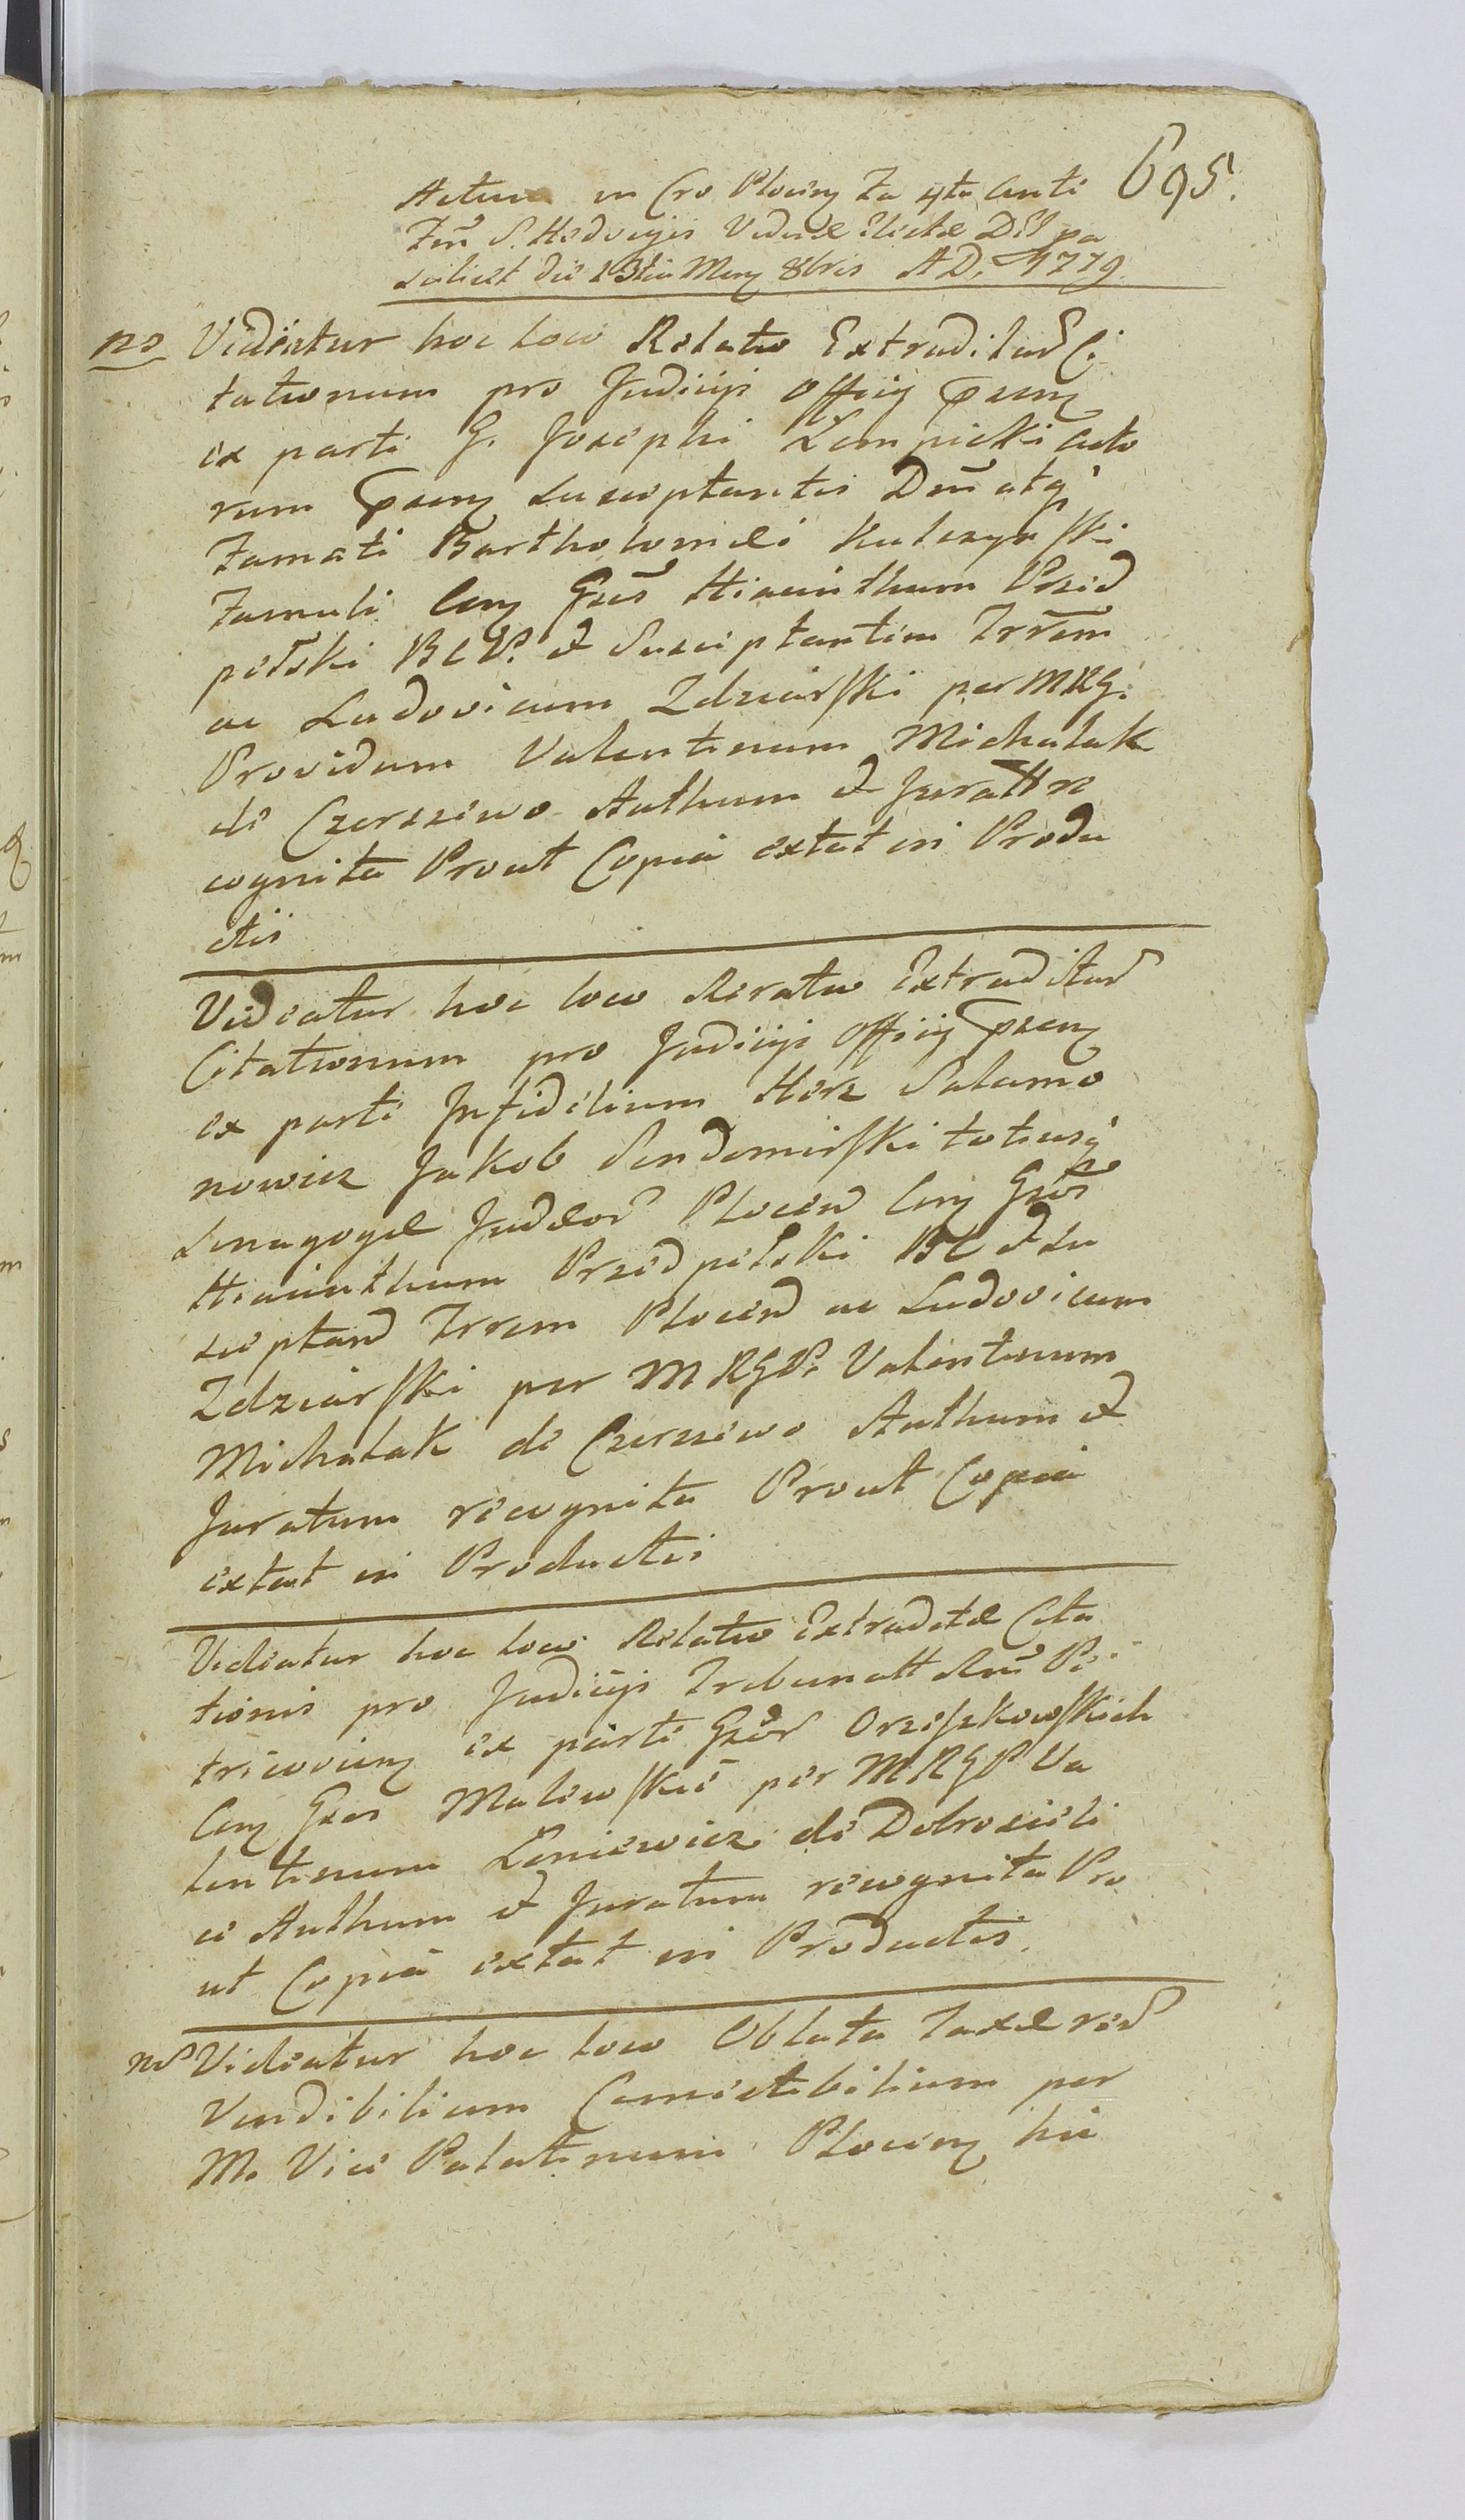 695.
Actum in Cro Plocen Fa 4ta Anti
Fm S. Hedvigis Viduæ Electæ Dei pa
scilicet die 13tia Mens 8bris A D. 1779
ns Videatur hoc loco Relatio Extraditar Ci
tationum pro Judicijs Officij Psen
ex parte G. Josephi Lempicki Acto
rum Psen Susceptantis Dni atq
Famati Bartholomei Kulczynski
Famuli Con Gsos Hiacinthum Przed
pełski B C P. et Susceptantem Trrem
ac Ludovicum Zdziarski per MRG.
Providum Valentinum Michalak
de Czerszewo Authum et Juratt re
cognita Prout Copia extat in Produ
ctis
Videatur hoc loco Relatio Extraditar
Citationum pro Judicijs Officij Psen
ex parte Infidelium Herz Salamo
nowicz Jakob Sendomirski totiusq
Sinagogæ Judæor Plocen Con Gsos
Hiacinthum Przedpełski BC et Su
sceptan Trrem Plocen ac Ludovicum
Zdziarski per M R G P. Valentinum
Michalak de Czerszewo Authum et
Juratum recognita Prout Copia
extat in Productis
Videatur hoc loco Relatio Extraditæ Cita
tionis pro Judicijs Tribunatt Rni Pe
tricovien ex parte Gsor Orzeszkowskich
Con Gsos Malewskie per M R G P Va
lentinum Leniewicz de Dobrosieli
ce Authum et Juratum recognita Pro
ut Copia extat in Productis.
ns Videatur hoc loco Oblata Taxæ rer
Vendibilium Comestibilium per
M. Vice Palatinum Plocen hic